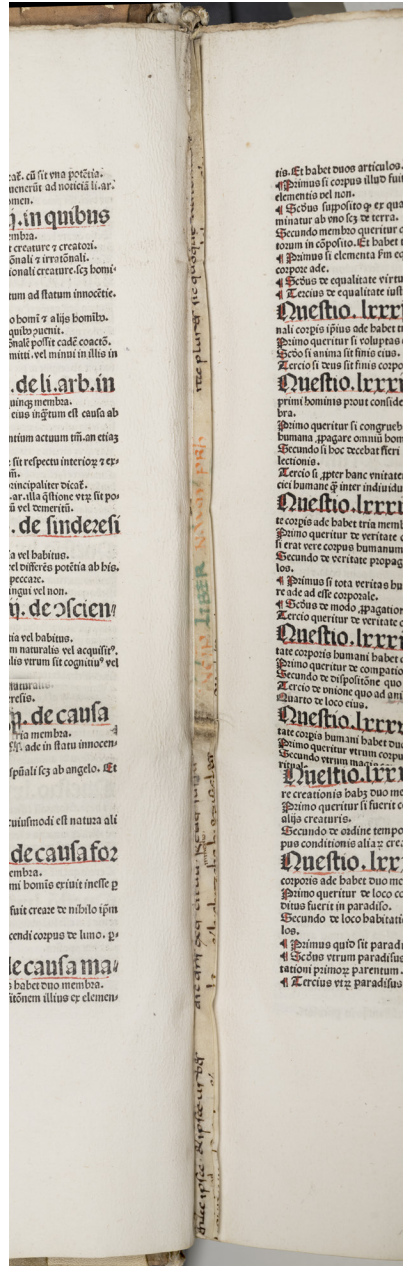 rat. cū sit vna potētia.
uenerūt ad noticiā li. ar.
omen.
ij. in quibus
embra.
t creature ⁊ creatori.
ōnali ⁊ irratōnali.
ionali creature. scȝ homi-
tum ad statum innocētie.
o homī ⁊ alijs homībꝰ.
quibꝰ ꝯuenit.
ōnale possit cadē coactō.
mitti. vel minui in illis in
. de li. arb. in
uinqꝫ membra.
eius inqꝫtum est causa ab
ntium actuum tm̄. an etiaȝ
sit respectu interioꝝ ⁊ ex-
m̄.
rincipaliter dicat.
ar. illa q̄stione vtꝝ sit po-
ū vel demeritū.
. de sinderesi
ia vel habitus.
vel differēs potētia ab his.
peccare.
ingui vel non.
ij. de ↄscien-
tia vel habitus.
m naturalis vel acquisitꝰ.
alis vtrum sit cognitiuꝰ vel
resis.
. de causa
ria membra.
ade in statu innocen-
spūali scȝ ab angelo. Et
cuiusmodi est natura ali
de causa for
embra.
mi homīs exiuit in esse ꝑ
fuit creare de nihilo ip̄m
cendi corpus de limo. ꝓ-
e causa ma-
habet duo membra.
itōnem illius ex elemen-
LIBER
tis. Et habet duos articulos.
¶ Primus si corpus illud fuit
elementis vel non.
¶ Scōus supposito ꝙ ex qua
minatur ab vno scȝ de terra.
Secundo membro queritur
torum in cōposito. Et habet t
¶ Primus si elementa fm eq
corpore ade.
¶ Scōus de equalitate virtu
¶ Tercius de equalitate iust
Questio. lxxx
nali corpis ip̄ius ade habet t
Primo queritur si voluptas
Scōo si anima sit finis eius.
Tercio si deus sit finis corpo
Questio. lxxx
primi hominis prout conside
bra.
Primo queritur si congrueb
humana ꝓpagare omniū hom
Secundo si hoc decebat fieri
lectionis.
Tercio si ꝓpter hanc vnitate
ciei humane q̄ inter indiuidu
Questio. lxxx
te corpis ade habet tria memb
Primo queritur de veritate
si erat vere corpus humanum
Secundo de veritate propag
los.
¶ Primus si tota veritas hu
re ade ad esse corporale.
¶ Scōus de modo ꝓpagation
Tercio queritur de veritate
Questio. lxxx
tate corporis humani habet
Primo queritur de compatio
Secundo de dispositōne quo
Tercio de vnione quo ad ani
Quarto de loco eius.
Questio. lxxx
tate corpis humani habet duo
Primo queritur vtrum corpu
Secundo vtrum
Questio. lxx
re creationis habȝ duo me
Primo queritur si fuerit c
alijs creaturis.
Secundo de ordine tempo
pus conditionis alia ꝝ crea
Questio. lxx
corporis ade habet duo me
Primo queritur de loco co
ditus fuerit in paradiso.
Secundo de loco habitati
los.
¶ Primus quid sit paradi
¶ Scōus vtrum paradisus
tationi primoꝝ parentum.
¶ Tercius vtꝝ paradisus